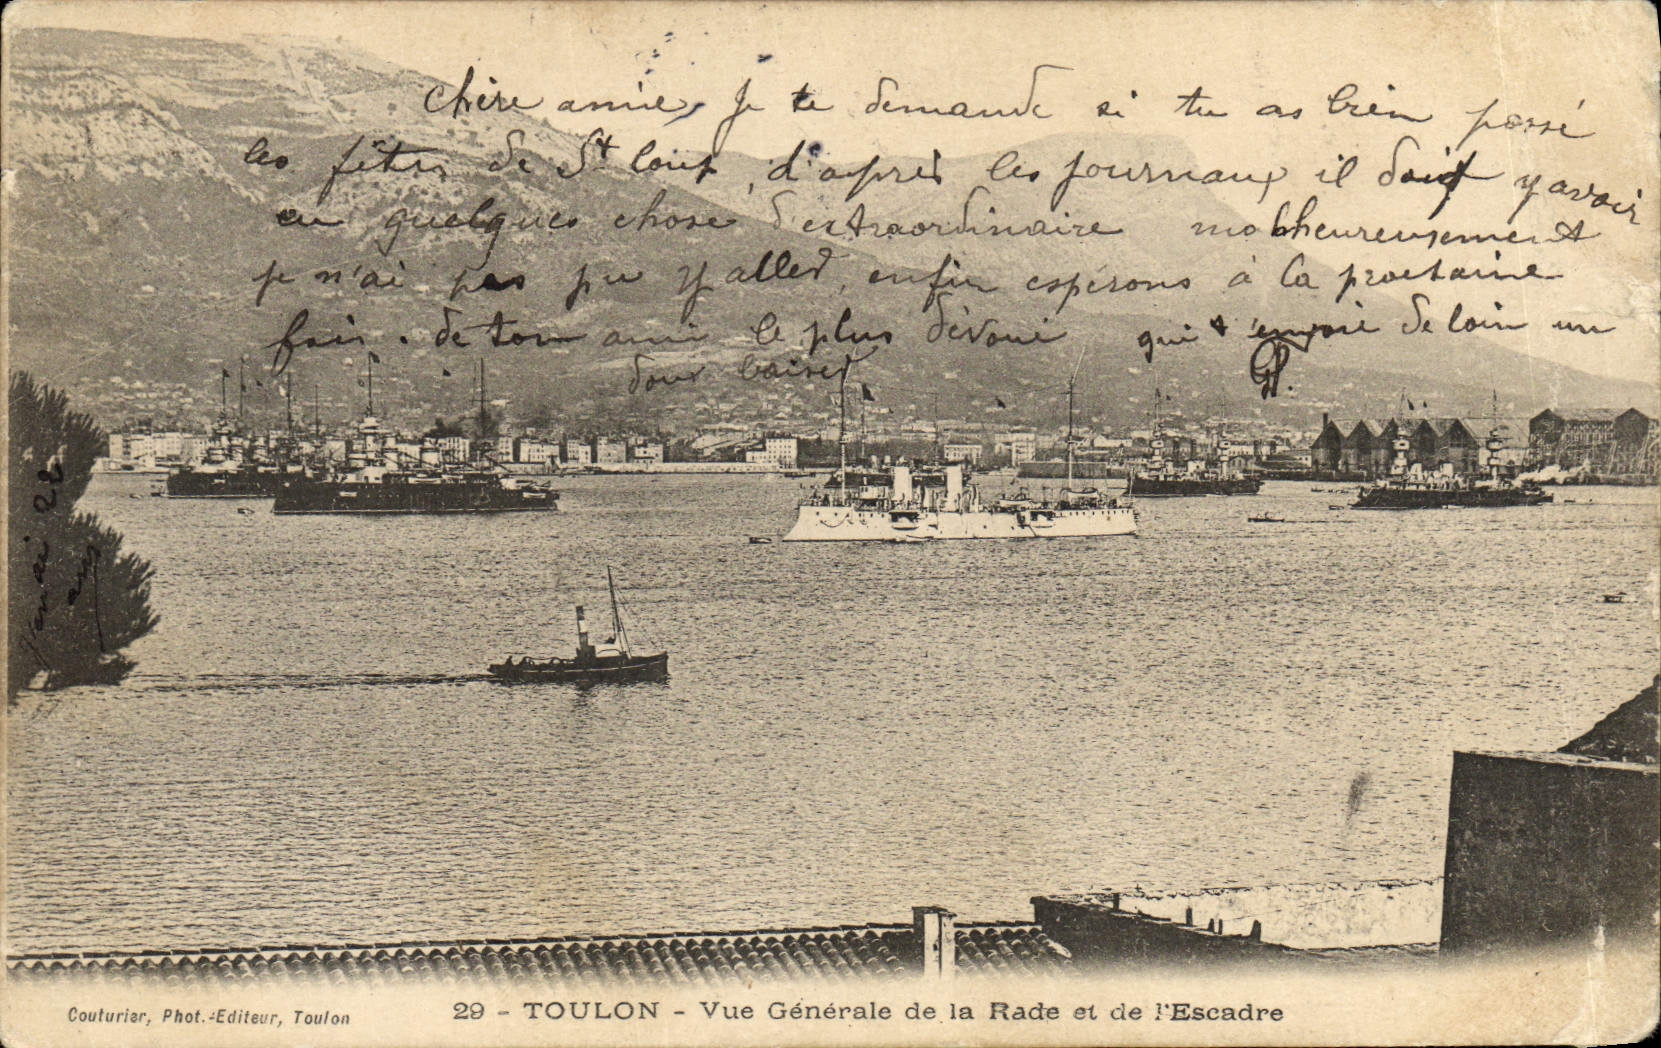 Chère amie, Je te demande si tu as bien passé
les fêtes de St Loup, d'après les journaux il doit y avoir
eu quelques chose d'extraordinaire malheureusement
je n'ai pas pu y aller, enfin espérons à la prochaine
fois. de ton ami le plus dévoué qui t'envoie de loin un
doux baiser
J'aurai 22
ans
Couturier, Phot.-Editeur, Toulon
29 - TOULON - Vue Générale de la Rade et de l'Escadre